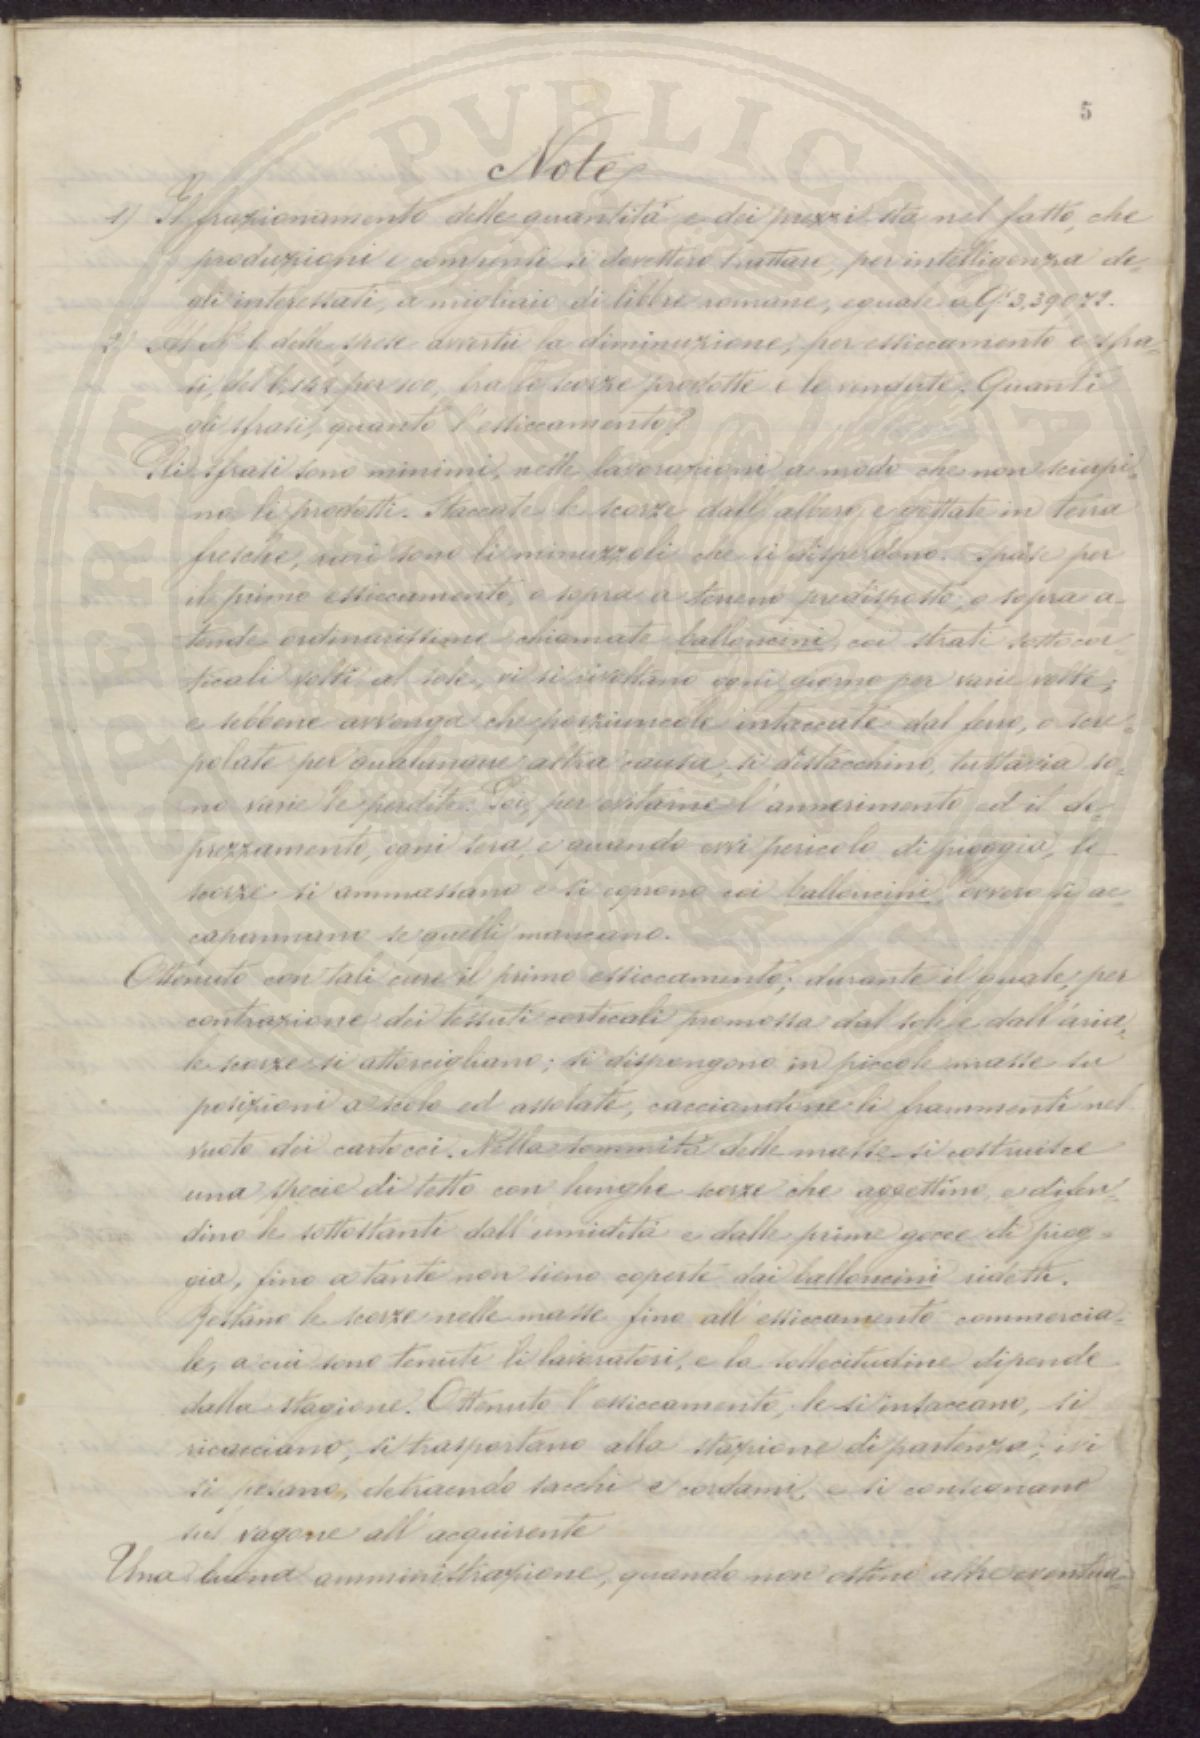 5
Note
1) Il frazionamento delle quantità e dei prezzi sta nel fatto, che
produzioni e compensi si dovettero trattare, per intelligenza de-
gli interessati, a migliaio di libbre romane, eguale a Q.i 3,39072.
2) Al N.o 1 delle spese avvertii la diminuzione, per essiccamento e sfra-
si, del per 100, fra le scorze prodotte e le vendute. Quanti
gli sfrasi, quanto l'essiccamento?
Gli sfrasi sono minimi, nelle lavorazioni a modo che non sciupi-
no li prodotti. Staccate le scorze dall'albero, e gettate in terra
fresche, rari sono li minuzzoli che si disperdono. Spase per
il primo essiccamento, o sopra a terreno predisposto, o sopra a
tende ordinarissime chiamate balloncini, coi strati sottocor-
ticali volti al sole, vi si rivoltano ogni giorno per varie volte;
e sebbene avvenga che porziuncole intaccate dal ferro, o scre-
polate per qualunque altra causa, si distacchino, tuttavia so-
no rarie le perdite. Poi, per evitarne l'annerimento ed il de-
prezzamento, ogni sera, e quando evvi pericolo di pioggia, le
scorze si ammassano e si coprono coi balloncini, ovvero si ac-
capannano se quelli mancano.
Ottenuto con tali cure il primo essiccamento; durante il quale, per
contrazione dei tessuti corticali promossa dal sole e dall'aria,
le scorze si attorcigliano; si dispongono in piccole masse su
posizioni a scolo ed assolate, cacciandone li frammenti nel
vuoto dei cartocci. Nella sommità delle masse si costruisce
una specie di tetto con lunghe scorze che assettino e difen-
dino le sottostanti dall'umidità e dalle prime gocce di piog-
gia, fino a tanto non sieno coperte dai balloncini ridetti.
Restano le scorze nelle masse fino all'essiccamento commercia-
le, a cui sono tenuti li lavoratori, e la sollecitudine dipende
dalla stagione. Ottenuto l'essiccamento, le si insaccano, si
ricacciano, si trasportano alla stazione di partenza; ivi
si pesano, detraendo sacchi e cordami, e si consegnano
sul vagone all'acquirente
Una buona amministrazione, quando non ostino altre eventua-